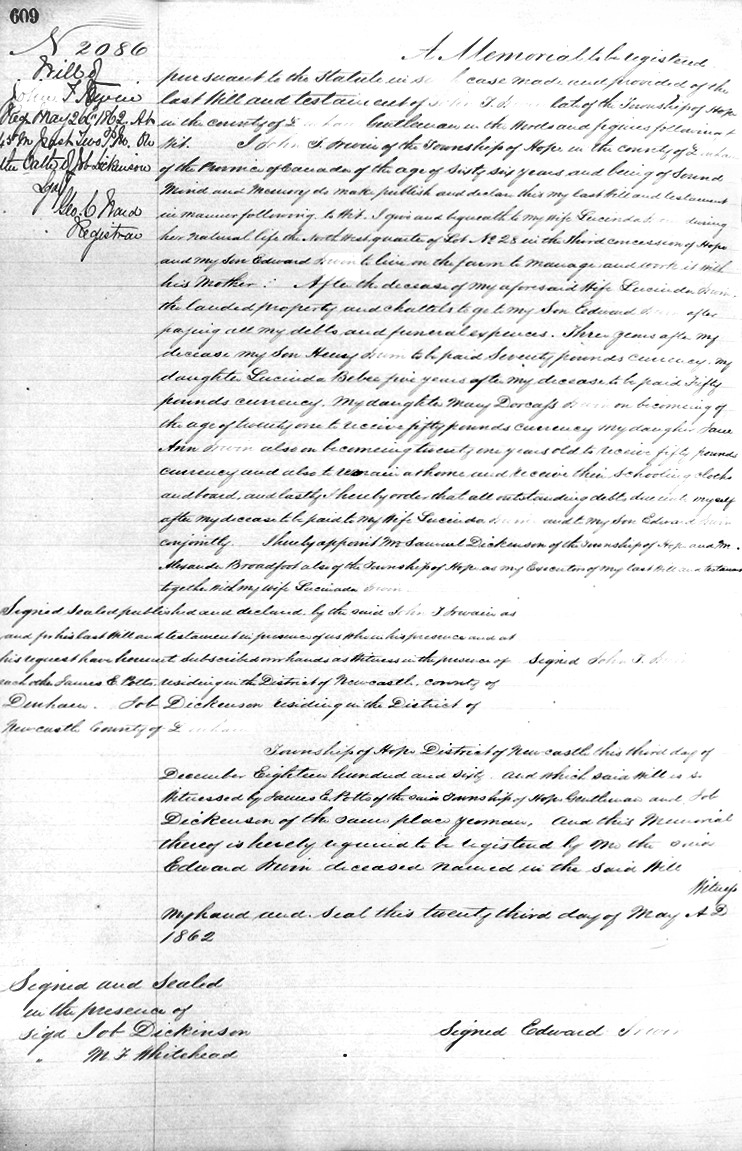 609
No 2086
Will of
John F Irwin
Reg May 26th 1862 At
45 Mn past Two P.M. On
the Oath of Job Dickinson
Geo. C Ward
Registrar
A Memorial to be registered
pursuant to the Statute in such case made and provided of the
last Will and testament of John F. Irwin late of the Township of Hope
in the county of Durham Gentleman in the Words and figures following to
Wit. I John F. Irwin of the Township of Hope in the county of Durham
of the Province of Canada of the age of Sixty six years and being of Sound
Mind and Memory do make publish and declare this my last Will and testament
in manner following to Wit. I give and bequeath to my Wife Lucinda Irwin during
her natural life the North West quarter of Lot No 28 in the third concession of Hope
and my Son Edward Irwin to live on the farm to manage and work it with
his Mother: After the decease of my aforesaid Wife Lucinda Irwin
the landed property and chattels to go to my Son Edward Irwin after
paying all my debts and funeral expences. Three years after my
decease my Son Henry Irwin to be paid Seventy pounds currency. my
daughter Lucinda Bebee five years after my decease to be paid Fifty
pounds currency. My daughter Mary Dorcass Irwin on becoming of
the age of twenty one to receive fifty pounds currency my daugher Jane
Ann Irwin also on becoming twenty one years old to receive fifty pounds
currency and also to remain at home and receive their Schooling cloths
and board, and lastly I hereby order that all outstanding debts due unto myself
after my decease to be paid to my Wife Lucinda Irwin and to my Son Edward Irwin
conjointly. I hereby appoint Mr Samuel Dickenson of the Township of Hope and Mr.
Alexander Broadfoot also of the Township of Hope as my Executors of my last Will and testament
together With my Wife Lucinda Irwin.
Signed Sealed published and declared by the said John F Irwin as
and for his last Will and testament in presence of us Who in his presence and at
his request have hereunto Subscribed our hands as Witness in the presence of Signed John F. Irwin
each other James E. Potts residing in the District of Newcastle. county of
Durham. Job Dickenson residing in the District of
Newcastle County of Durham
Township of Hope District of Newcastle this third day of
December Eighteen hundred and Sixty. And which said Will is so
Witnessed by James E. Potts of the said Township of Hope Gentleman and Job
Dickenson of the same place yeoman, And this Memorial
thereof is hereby required to be registered by Me the said
Edward Irwin deceased named in the said Will
Witness
My hand and Seal this twenty third day of May A D
1862
Signed and Sealed
in the presence of
sigd Job Dickinson Signed Edward Irwin
" M. F. Whitehead